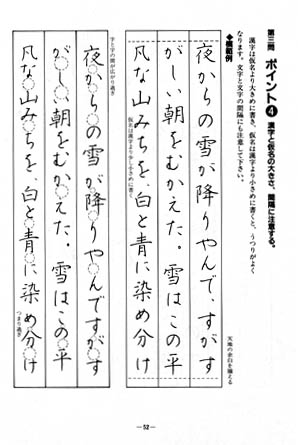 第三問 ポイント④ 漢字と仮名の大きさ、間隔に注意する。
漢字は仮名より大きめに書き、仮名は漢字より小さめに書くと、うつりがよく
なります。文字と文字の間隔にも注意して下さい。
◆模範例
夜からの雪が降りやんで、すがす
がしい朝をむかえた。雪はこの平
凡な山みちを、白と青に染め分け
天地の余白を揃える
仮名は漢字より少し小さめに書く
字と字の間が広がり過ぎ
夜からの雪が降りやんですがす
がしい朝をむかえた。雪はこの平
凡な山みちを、白と青に染め分け
つまり過ぎ
—52—